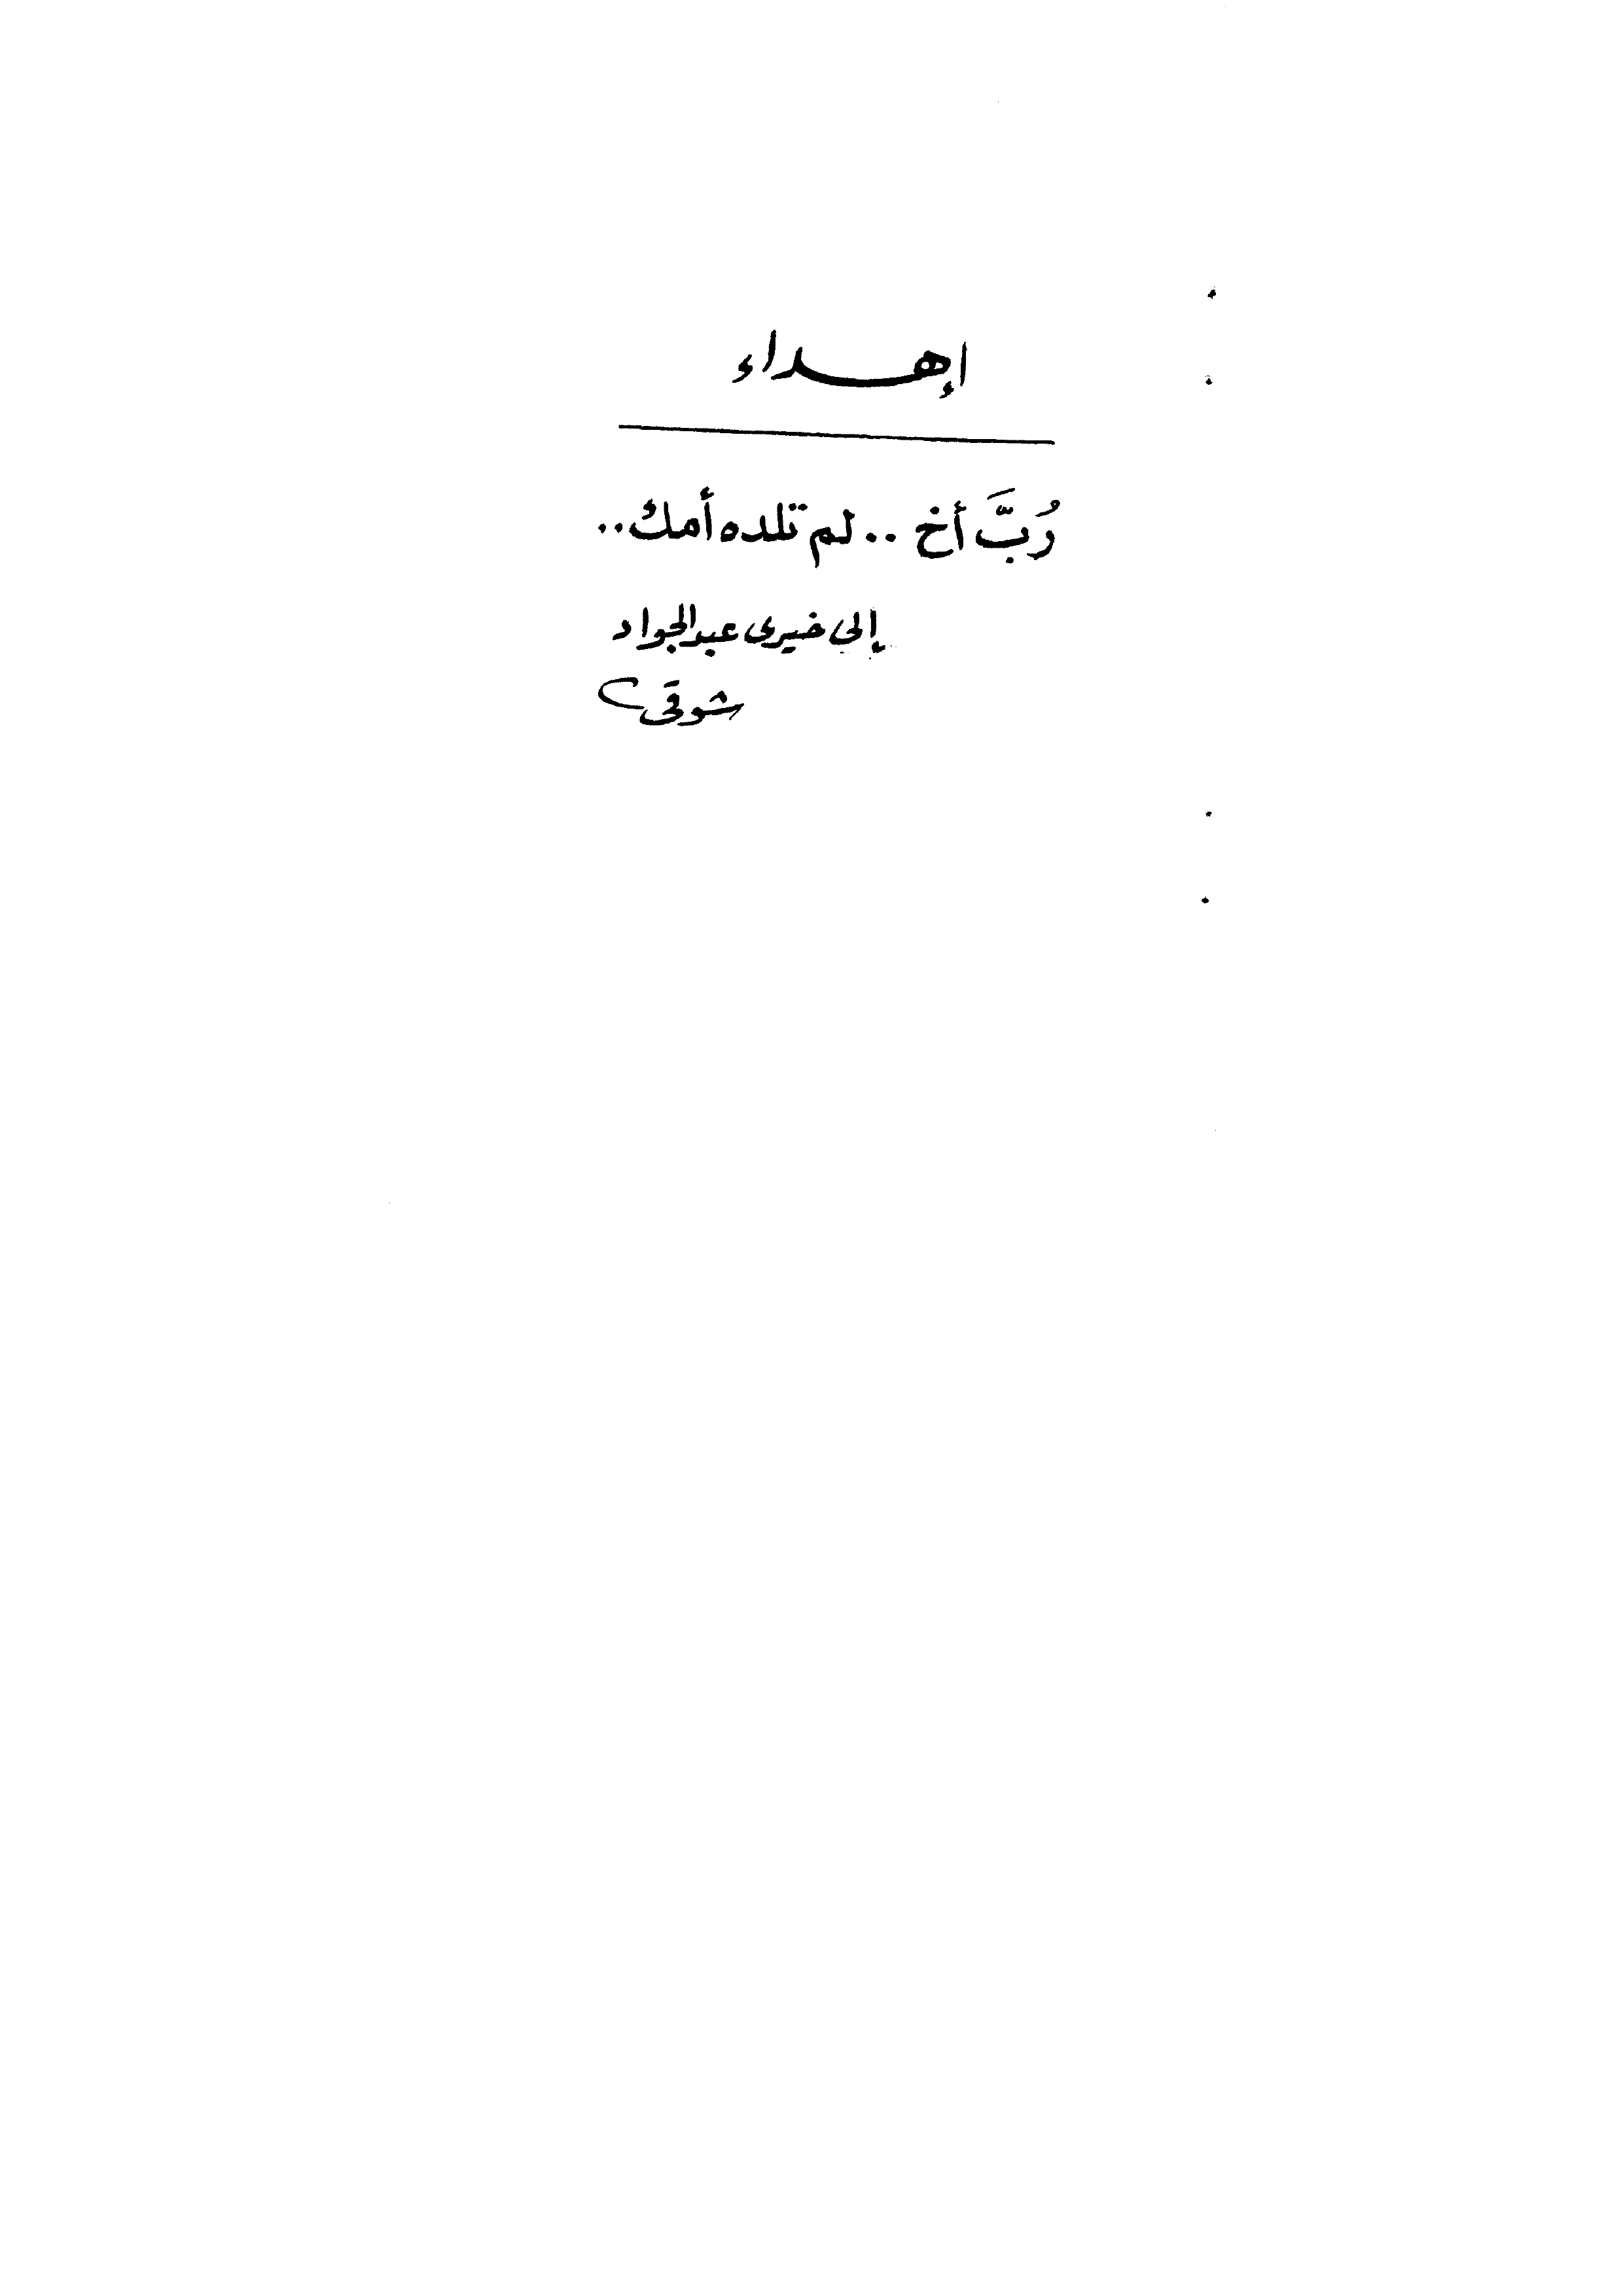 إهـــداء
رُبَّ أخ .. لم تلده أمك ..
إلى خيرى عبدالجواد
شوقى